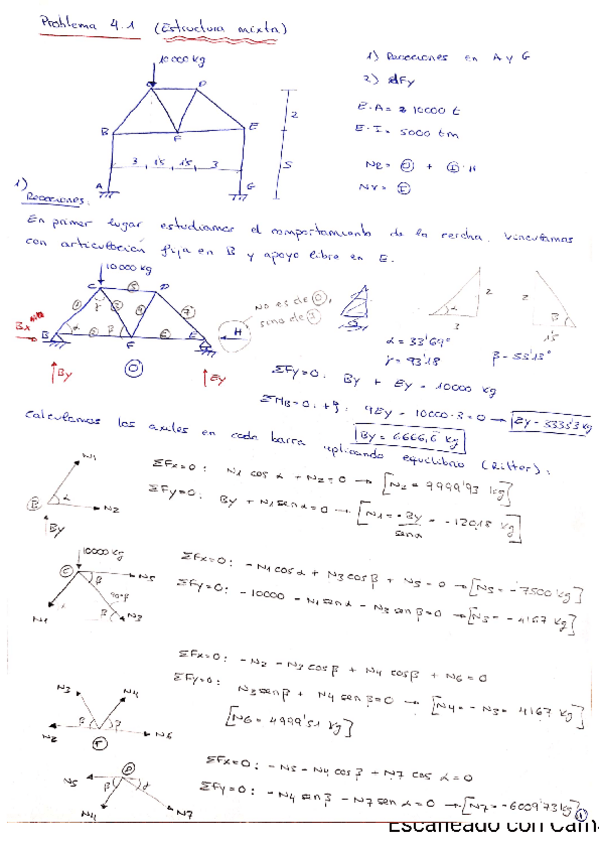 Problema 4.1 (Estructura mixta)
10000 kg
1) Reacciones en A y G
2) dFy
E·A = 210000 t
E·I = 5000 tm
C D
B F E
3 1'5 1'5 3
2
5
A G
1)
Reacciones:
En primer lugar estudiamos el comportamiento de la cercha, vinculamos
con articulación fija en B y apoyo libre en E.
10000 kg
No es de 0,
sino de
H
By
Ey
α = 33'69°
γ = 93'18
β = 53'13°
2
3
2
1'5
ΣFy=0: By + Ey = 10000 kg
ΣMB=0: 9Ey - 10000·3 = 0 → Ey = 3333'3 kg
By = 6666,6 kg
Calculamos los axiles en cada barra aplicando equilibrio (Ritter):
N1
N2
By
ΣFx=0: N1 cos α + N2 = 0 → [N2 = 9999'93 kg]
ΣFy=0: By + N1 sen α = 0 → [N1 = -By/sen α = -12018 kg]
10000 kg
N5
N1
N3
ΣFx=0: -N1 cos α + N3 cos β + N5 = 0 → [N5 = -7500 kg]
ΣFy=0: -10000 - N1 sen α - N3 sen β = 0 → [N3 = -4167 kg]
N3
N4
N2
N6
ΣFx=0: -N2 - N3 cos β + N4 cos β + N6 = 0
ΣFy=0: N3 sen β + N4 sen β = 0 → [N4 = -N3 = 4167 kg]
[N6 = 4999'51 kg]
N5
N4
N7
ΣFx=0: -N5 - N4 cos β + N7 cos α = 0
ΣFy=0: -N4 sen β - N7 sen α = 0 → [N7 = -6009'73 kg]
1
Escaneado con Cam